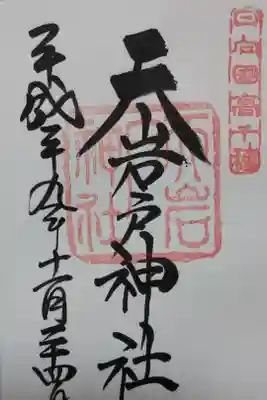 日向國高千穂
天岩戸神社
天岩戸神社
平成二十九年十一月二十四日